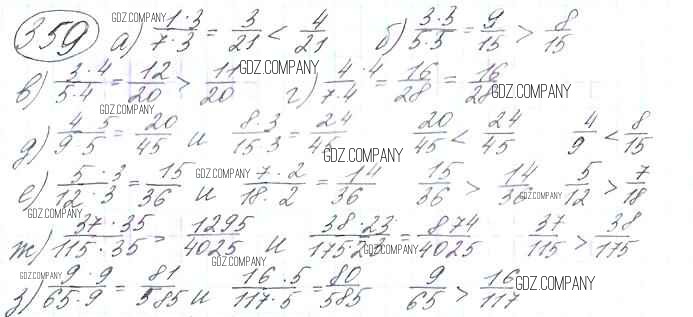 359 а) 1·3/7·3 = 3/21 < 4/21 б) 3·3/5·3 = 9/15 > 8/15
в) 3·4/5·4 = 12/20 > 11/20 г) 4·4/7·4 = 16/28 = 16/28
д) 4·5/9·5 = 20/45 и 8·3/15·3 = 24/45 20/45 < 24/45 4/9 < 8/15
е) 5·3/12·3 = 15/36 и 7·2/18·2 = 14/36 15/36 > 14/36 5/12 > 7/18
ж) 37·35/115·35 > 1295/4025 и 38·23/175·23 = 874/4025 37/115 > 38/175
з) 9·9/65·9 = 81/585 и 16·5/117·5 = 80/585 9/65 > 16/117
GDZ.COMPANY
GDZ.COMPANY
GDZ.COMPANY
GDZ.COMPANY
GDZ.COMPANY
GDZ.COMPANY
GDZ.COMPANY
GDZ.COMPANY
GDZ.COMPANY
GDZ.COMPANY
GDZ.COMPANY
GDZ.COMPANY
GDZ.COMPANY
GDZ.COMPANY